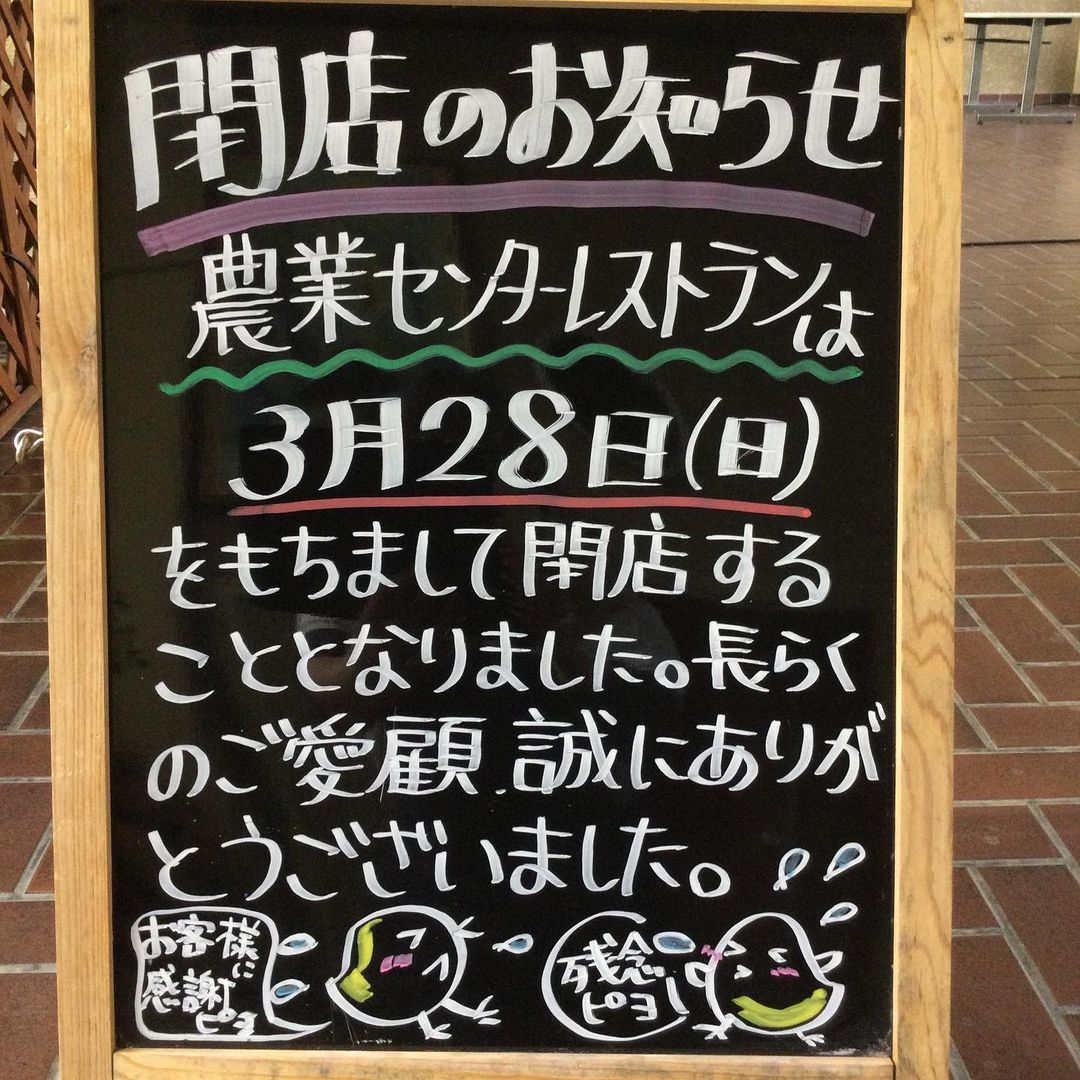 閉店のお知らせ
農業センターレストランは
3月28日(日)
をもちまして閉店する
こととなりました。長らく
のご愛顧、誠にありが
とうございました。
お客様に
感謝
ピヨ
残念
ピヨ